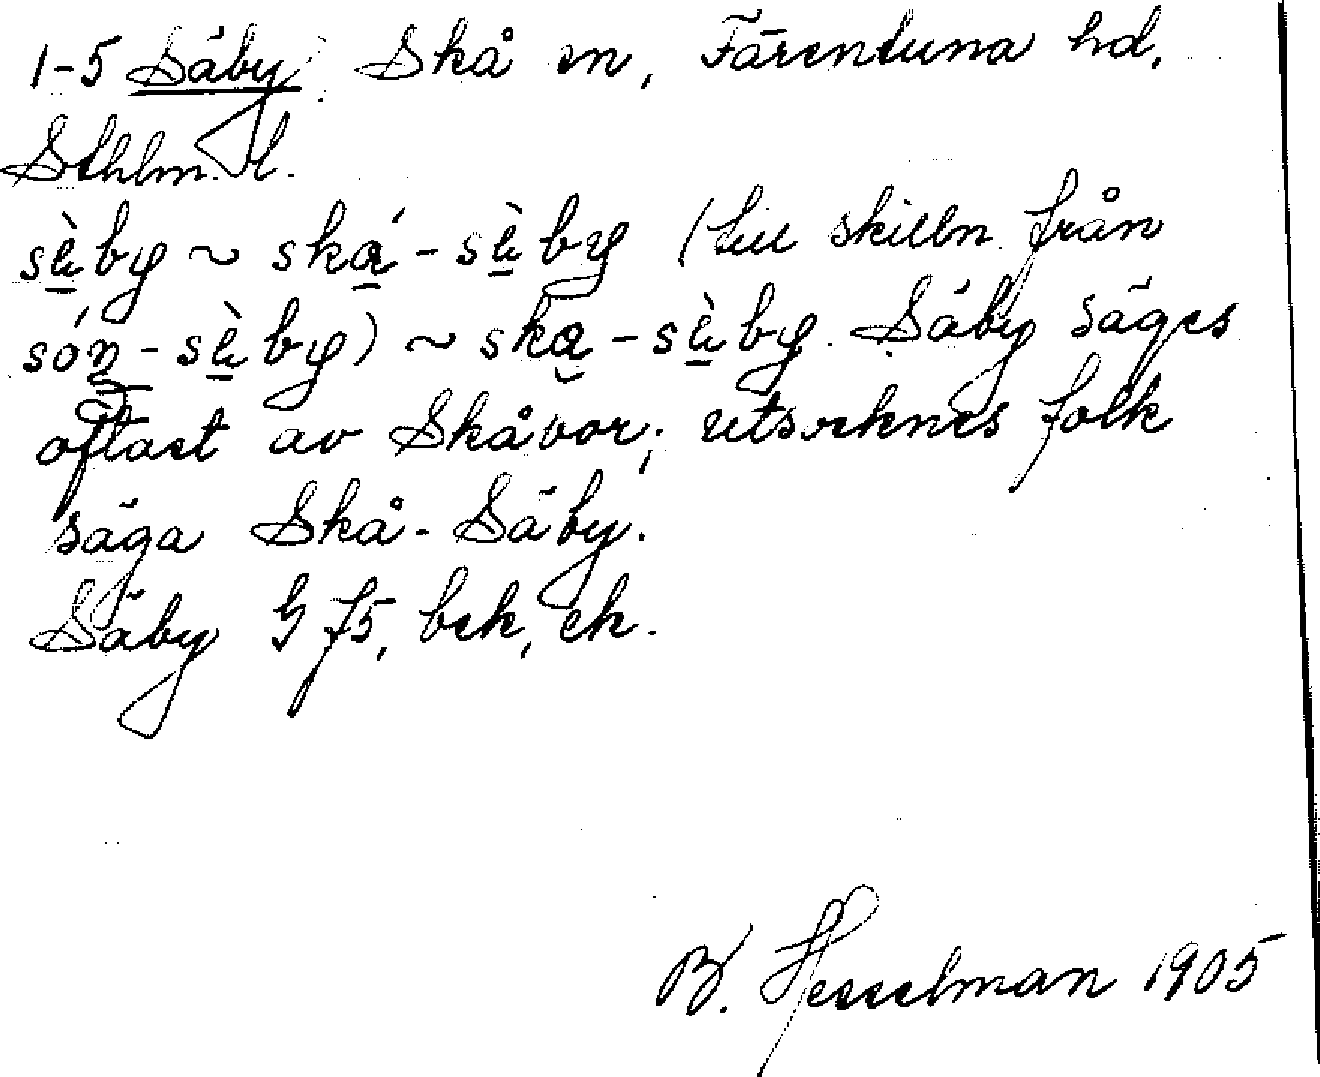 1-5 Säby Skå sn, Färentuna hd,
Sthlm. l.
sὲ̱by ~ ská̱ - sὲ̱by (till skilln. från
són̠ - sὲ̱by) ~ ska̱ - sὲ̱by. Säby säges
oftast av Skåbor; utsocknes folk
säga Skå-Säby.
Säby G f5, bek, ek.
B. Hesselman 1905